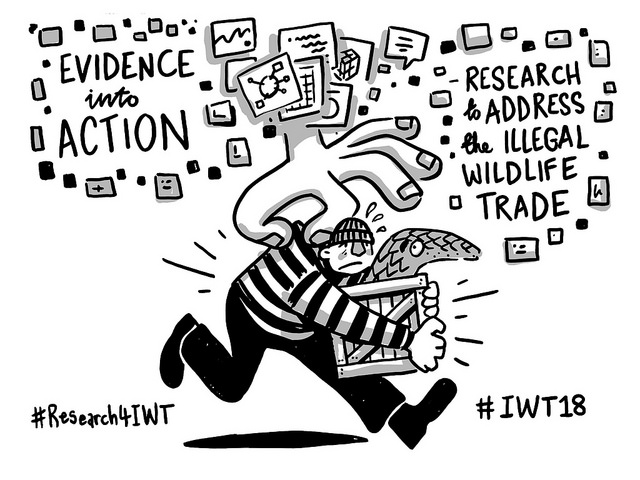 EVIDENCE
into
ACTION
RESEARCH
to ADDRESS
the ILLEGAL
WILDLIFE
TRADE
#Research4IWT
#IWT18